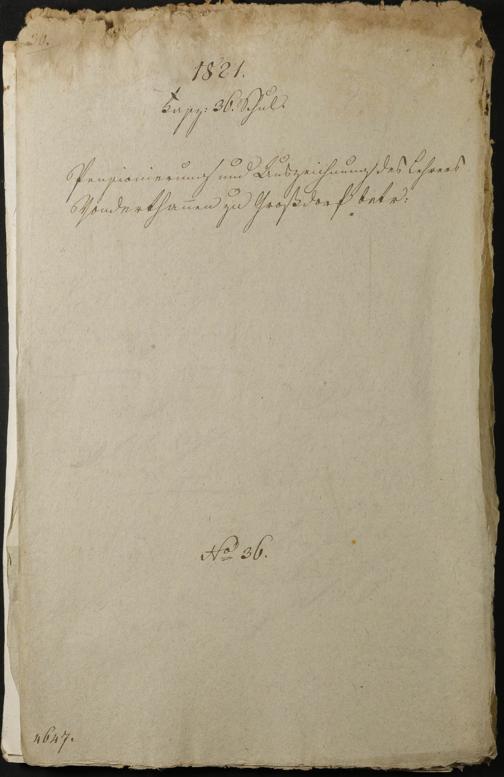 30.
1821.
36. Schul.
Pensionierung und Auszeichnung des Lehrers
Vonderthannen zu Großdorf betr:
No 36.
4647.